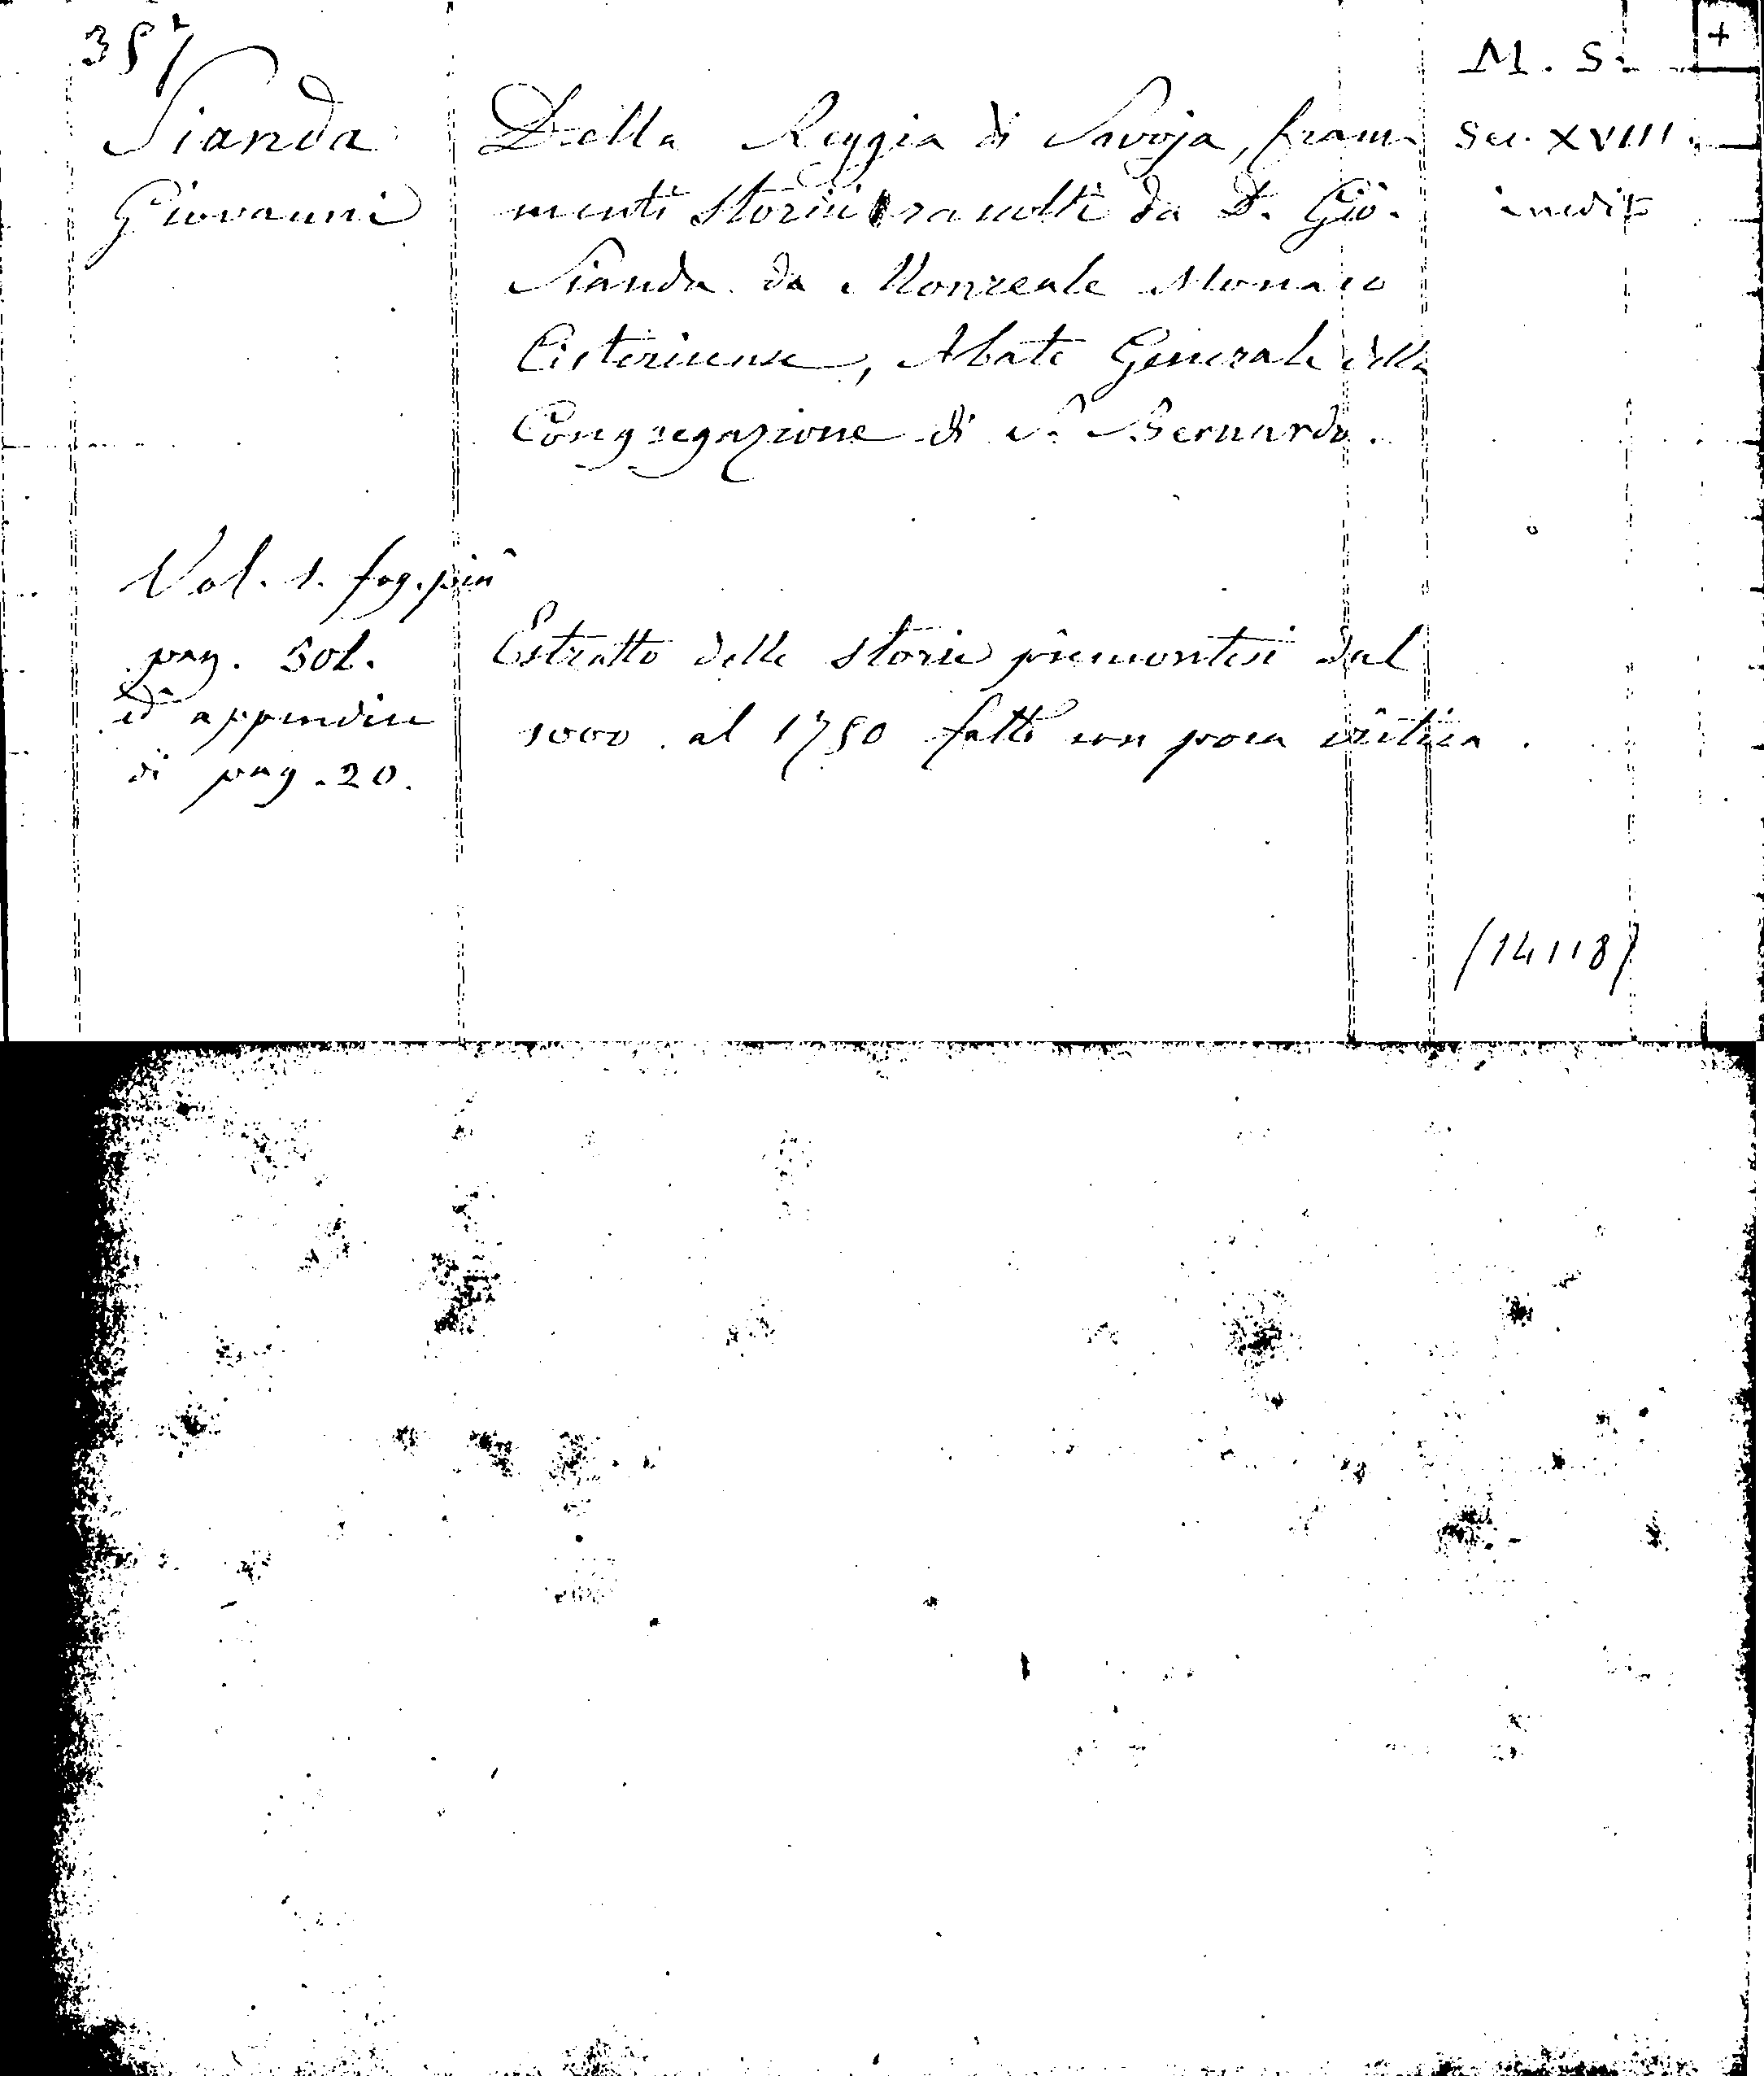 357
Sianda
Giovanni
Della Reggia di Savoja, fram-
menti storici racolti da D. Gio.
Sianda da Monreale Monaco
Cisterciense, Abate Generale della
Congregazione di S. Bernardo.
M. S. +
Sec. XVIII.
inedito
Vol. 1. fog. pin
pag. 502.
ed appendice
di pag. 20.
Estratto delle storie piemontesi dal
1000 al 1750 fatto con poca critica.
(14118)